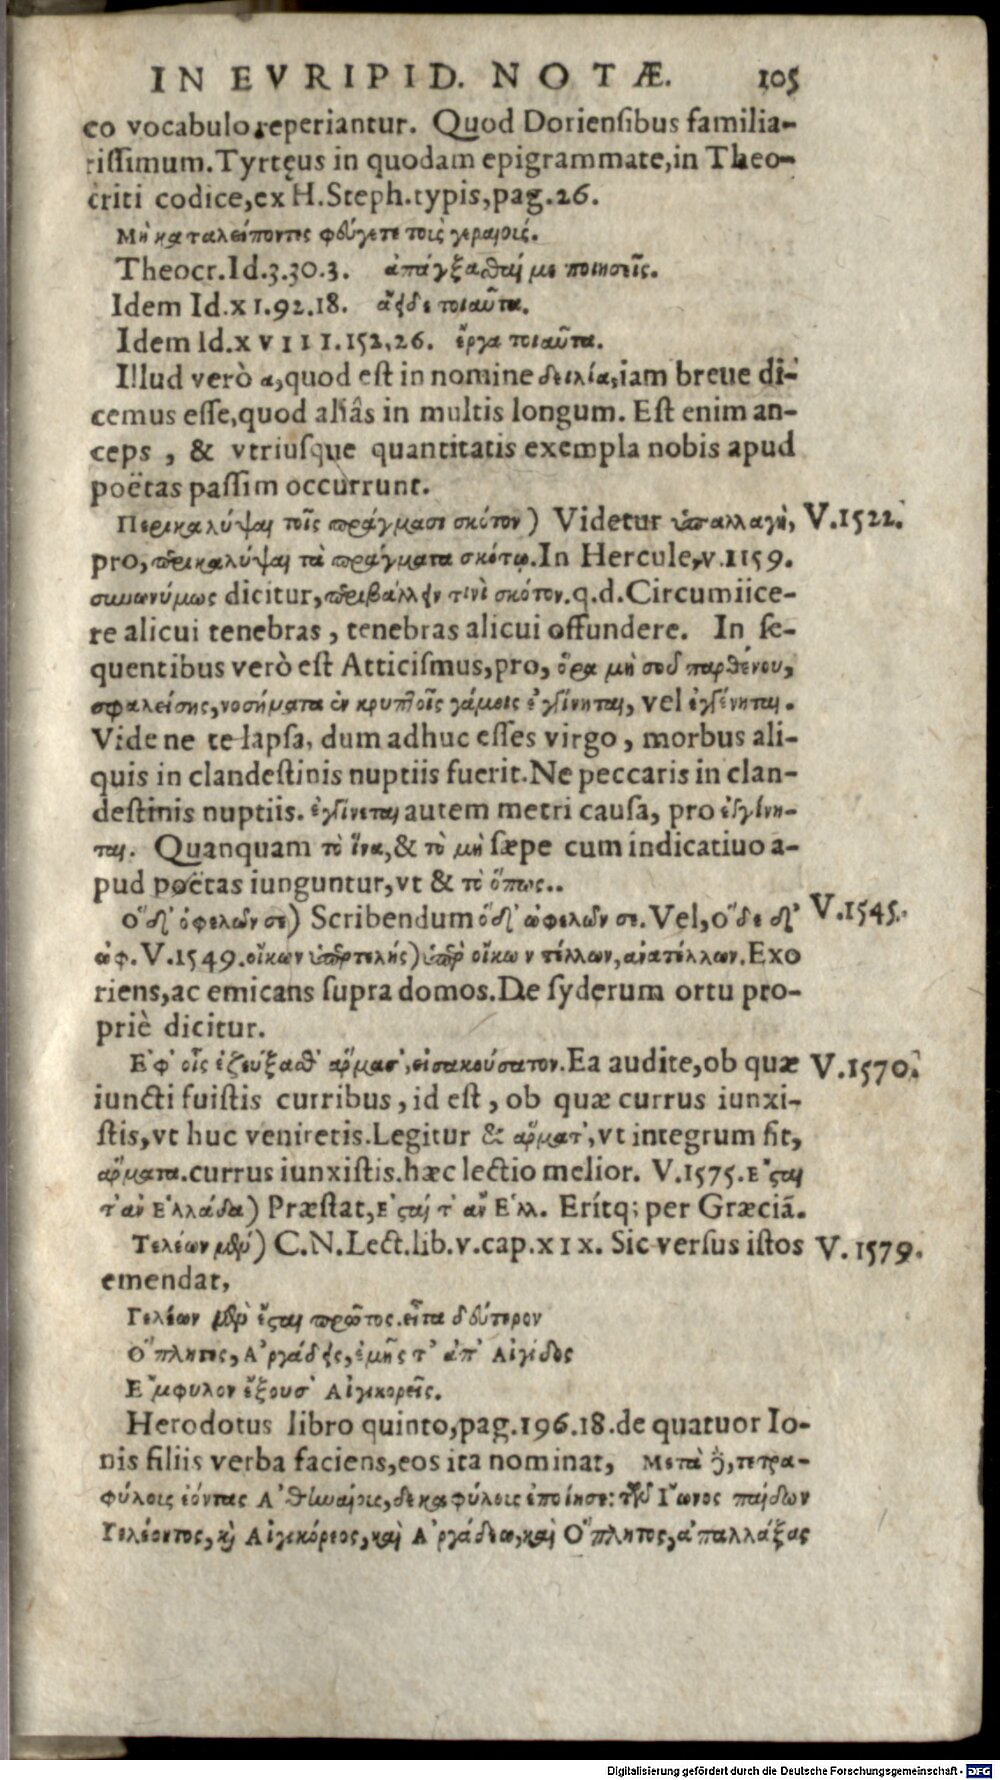 IN EVRIPID. NOTÆ. 105
eo vocabulo reperiantur. Quod Doriensibus familia-
rissimum. Tyrtęus in quodam epigrammate, in Theo-
criti codice, ex H. Steph. typis, pag. 26.
Μὴ καταλείποντες φεύγετε τοὺς γεραιούς.
Theocr. Id. 3. 30. 3. ἀπάγξαθαί με ποιησεῖς.
Idem Id. XI. 92. 18. ἄειδε τοιαῦτα.
Idem Id. XVIII. 152, 26. ἔργα τοιαῦτα.
Illud verò α, quod est in nomine δειλία, iam breue di-
cemus esse, quod aliâs in multis longum. Est enim an-
ceps, & vtriusque quantitatis exempla nobis apud
poëtas passim occurrunt.
Περικαλύψαι τοῖς πράγμασι σκότον) Videtur ὑπαλλαγὴ, V. 1522.
pro, περικαλύψαι τὰ πράγματα σκότῳ. In Hercule, v. 1159.
συνωνύμως dicitur, περιβάλλειν τινὶ σκότον. q. d. Circumiice-
re alicui tenebras, tenebras alicui offundere. In se-
quentibus verò est Atticismus, pro, ὅρα μὴ σοῦ παρθένου,
σφαλείσης, νοσήματα ἐν κρυπτοῖς γάμοις ἐγγίνηται, vel ἐγγένηται.
Vide ne te lapsa, dum adhuc esses virgo, morbus ali-
quis in clandestinis nuptiis fuerit. Ne peccaris in clan-
destinis nuptiis. ἐγγίνεται autem metri causa, pro ἐγγίνη-
ται. Quanquam τὸ ἵνα, & τὸ μὴ sæpe cum indicatiuo a-
pud poëtas iunguntur, vt & τὸ ὅπως..
Ὅδ' ὀφελῶν σε) Scribendum ὅδ' ὠφελῶν σε. Vel, ὅδε δ' V. 1545.
ὠφ. V. 1549. οἴκων ὑπερτελὴς) ὑπὲρ οἴκων τέλλων, ἀνατέλλων. Exo
riens, ac emicans supra domos. De syderum ortu pro-
priè dicitur.
Ἐφ' οἷς ἐζεύξαθ' ἅρμασ', εἰσακούσατον. Ea audite, ob quæ V. 1570.
iuncti fuistis curribus, id est, ob quæ currus iunxi-
stis, vt huc veniretis. Legitur & ἅρματ', vt integrum sit,
ἅρματα. currus iunxistis. hæc lectio melior. V. 1575. Ἔσται
τ' ἀν Ἑλλάδα) Præstat, Ἔσται τ' ἀν Ἑλλ. Erítq; per Græciā.
Τελέων μὲν) C. N. Lect. lib. v. cap. XIX. Sic versus istos V. 1579.
emendat,
Γελέων μὲν ἔσται πρῶτος. εἶτα δεύτερον
Ὅπλητες, Ἀργάδεις, ἐμῆς τ' ἀπ' Αἰγίδος
Ἔμφυλον ἕξουσ' Αἰγικορεῖς.
Herodotus libro quinto, pag. 196. 18. de quatuor Io-
nis filiis verba faciens, eos ita nominat, Μετὰ δὲ, τετρα-
φύλους ἐόντας Ἀθηναίους, δεκαφύλους ἐποίησε: τῶν Ἴωνος παίδων
Γελέοντος, καὶ Αἰγικόρεος, καὶ Ἀργάδεω, καὶ Ὅπλητος, ἀπαλλάξας
Digitalisierung gefördert durch die Deutsche Forschungsgemeinschaft - DFG